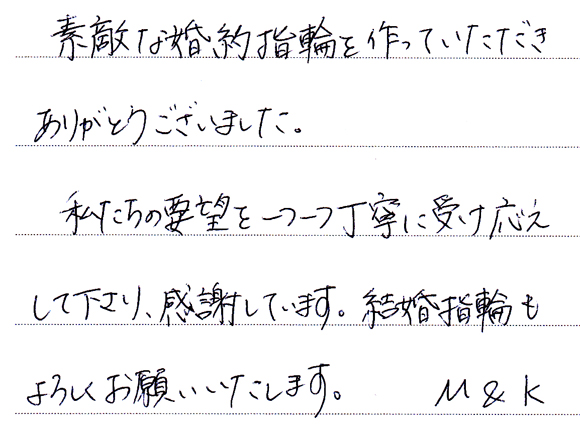 素敵な婚約指輪を作っていただき
ありがとうございました。
私たちの要望を一つ一つ丁寧に受け応え
して下さり、感謝しています。結婚指輪も
よろしくお願いいたします。 M & K